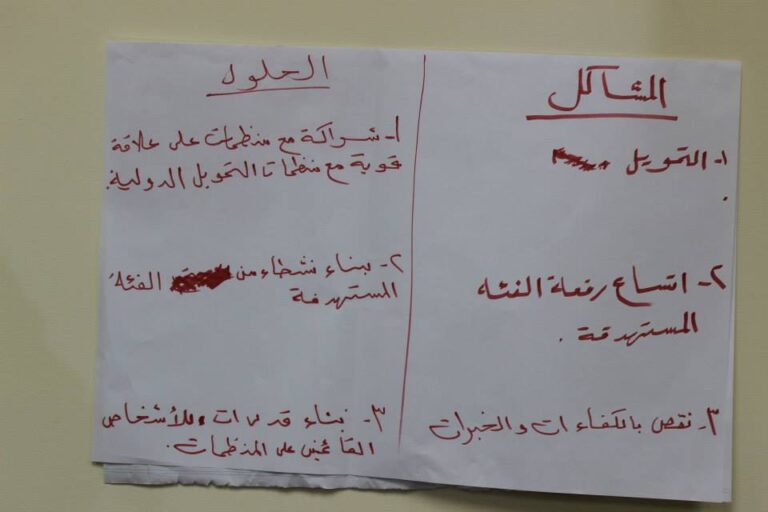 المشاكل
١- التمويل
٢- اتساع رقعة الفئة
المستهدفة .
٣- نقص بالكفاءات والخبرات
الحلول
١- شراكة مع منظمات على علاقة
قوية مع منظمات التمويل الدولية.
٢- بناء نشطاء من الفئة
المستهدفة
٣- بناء قدرات للأشخاص
القائمين على المنظمات.